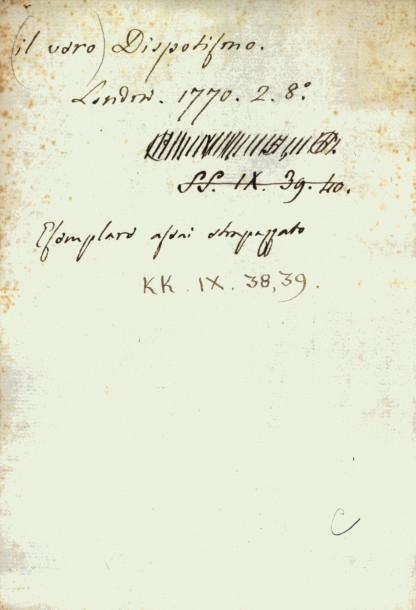 (il vero) Dispotismo.
London. 1770. 2. 8.°
SS. IX. 39. 40.
Esemplare assai strapazzato
KK. IX. 38, 39.
C